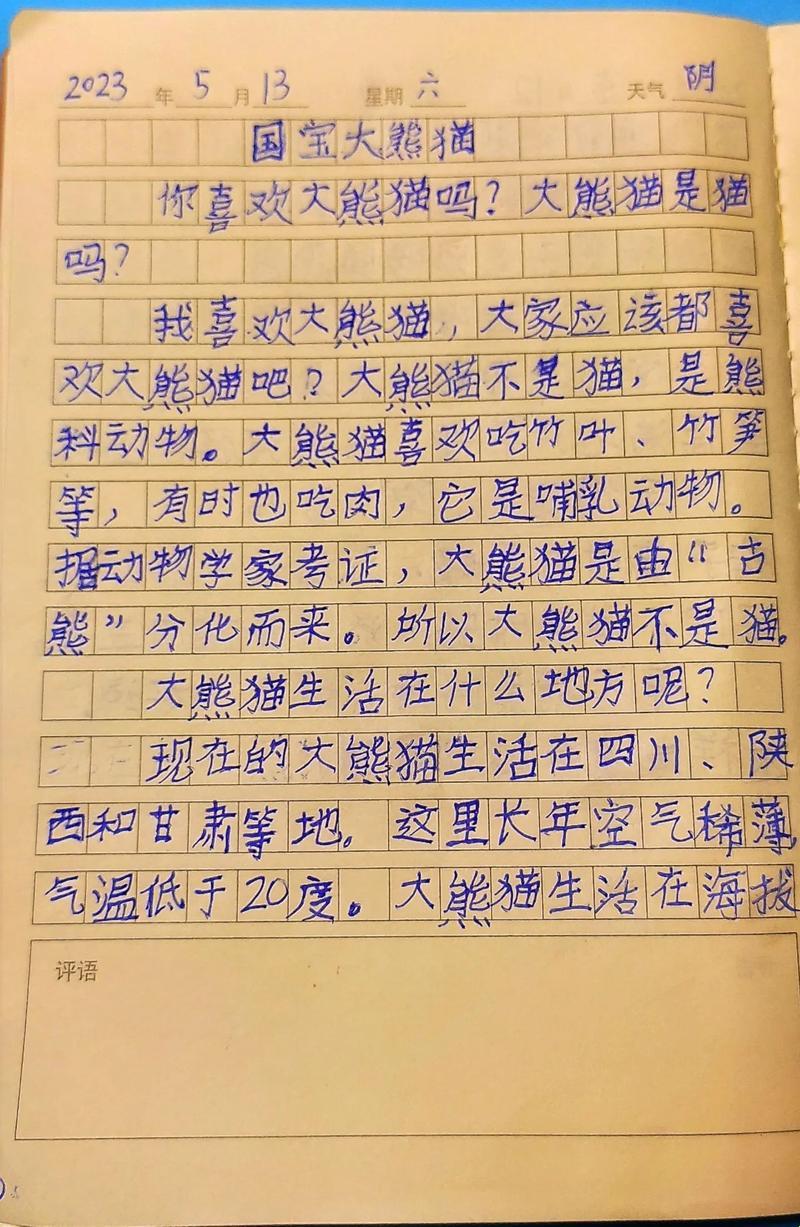 2023年5月13 星期六 天气阴
国宝大熊猫
你喜欢大熊猫吗？大熊猫是猫
吗？
我喜欢大熊猫，大家应该都喜
欢大熊猫吧？大熊猫不是猫，是熊
科动物。大熊猫喜欢吃竹叶、竹笋
等，有时也吃肉，它是哺乳动物。
据动物学家考证，大熊猫是由“古
熊”分化而来。所以大熊猫不是猫。
大熊猫生活在什么地方呢？
现在的大熊猫生活在四川、陕
西和甘肃等地。这里长年空气稀薄，
气温低于20度。大熊猫生活在海拔
评语